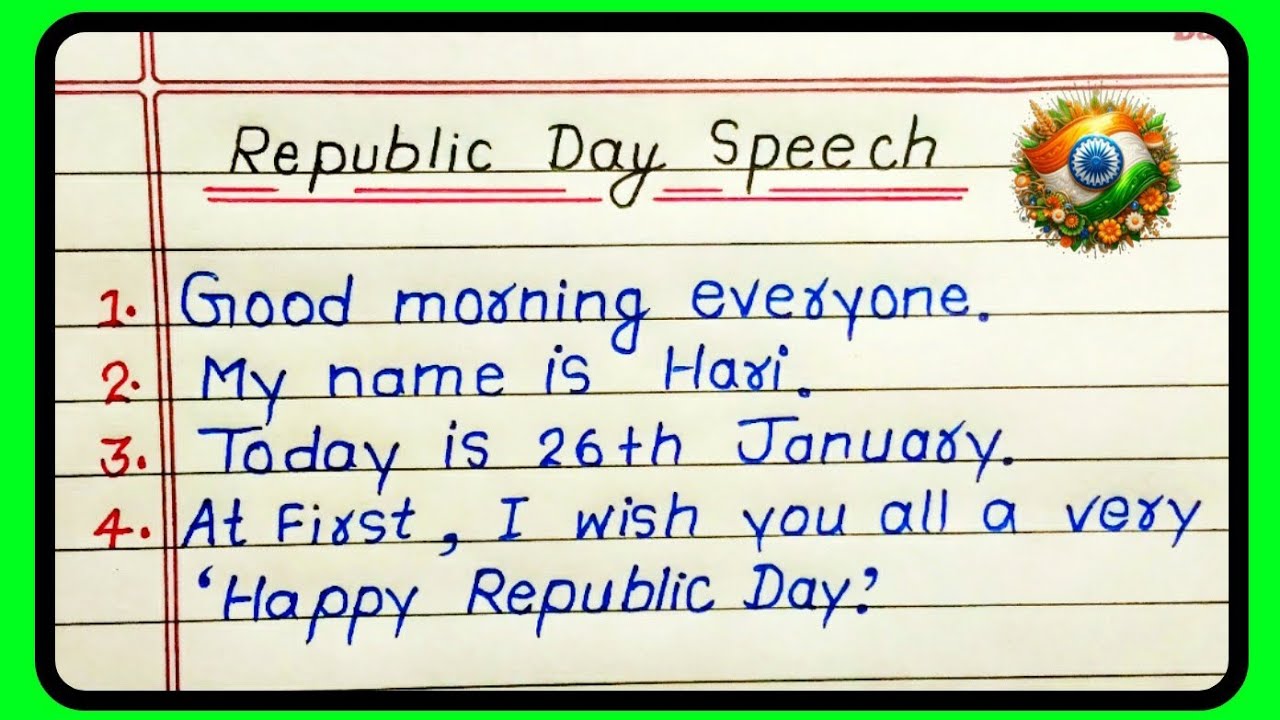 Republic Day Speech
1. Good morning everyone.
2. My name is Hari.
3. Today is 26th January.
4. At First, I wish you all a very
'Happy Republic Day.'